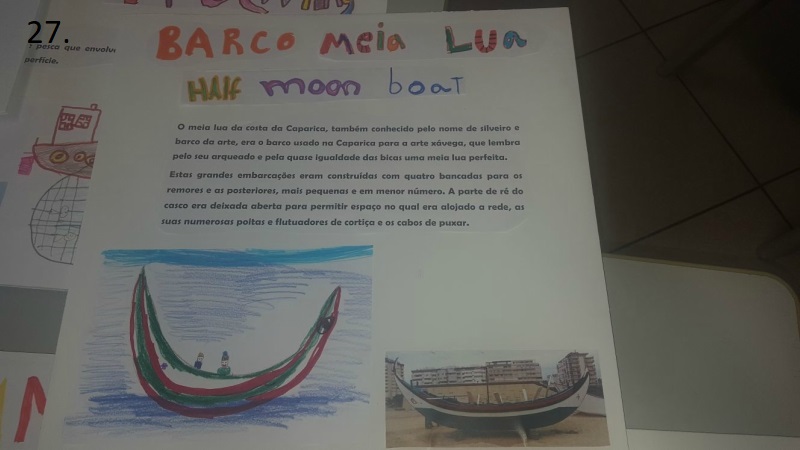 27.
pesca que envolv
perfície.
BARCO Meia LUa
HAlf moon boat
O meia lua da costa da Caparica, também conhecido pelo nome de silveiro e
barco da arte, era o barco usado na Caparica para a arte xávega, que lembra
pelo seu arqueado e pela quase igualdade das bicas uma meia lua perfeita.
Estas grandes embarcações eram construídas com quatro bancadas para os
remores e as posteriores, mais pequenas e em menor número. A parte de rê do
casco era deixada aberta para permitir espaço no qual era alojado a rede, as
suas numerosas poitas e flutuadores de cortiça e os cabos de puxar.